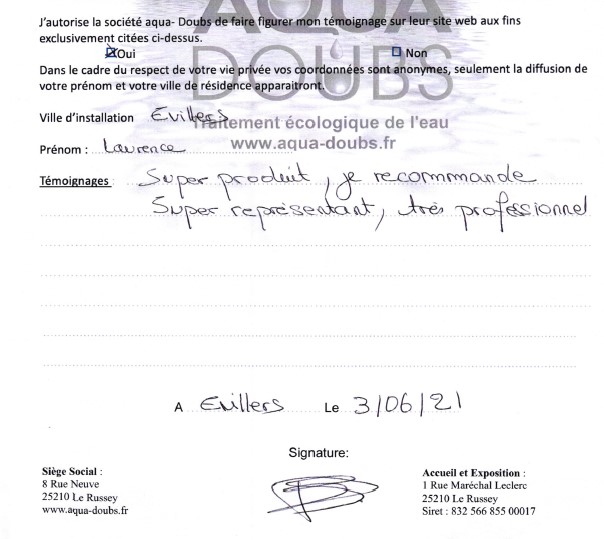 AQUA
DOUBS
J'autorise la société aqua- Doubs de faire figurer mon témoignage sur leur site web aux fins
exclusivement citées ci-dessus.
Oui Non
Dans le cadre du respect de votre vie privée vos coordonnées sont anonymes, seulement la diffusion de
votre prénom et votre ville de résidence apparaitront.
Ville d'installation Evillers
Traitement écologique de l'eau
Prénom : Laurence
www.aqua-doubs.fr
Témoignages Super produit, je recommande
Super représentant, très professionnel
A Evillers Le 3/06/21
Signature:
Siège Social :
8 Rue Neuve
25210 Le Russey
www.aqua-doubs.fr
Accueil et Exposition :
1 Rue Maréchal Leclerc
25210 Le Russey
Siret : 832 566 855 00017